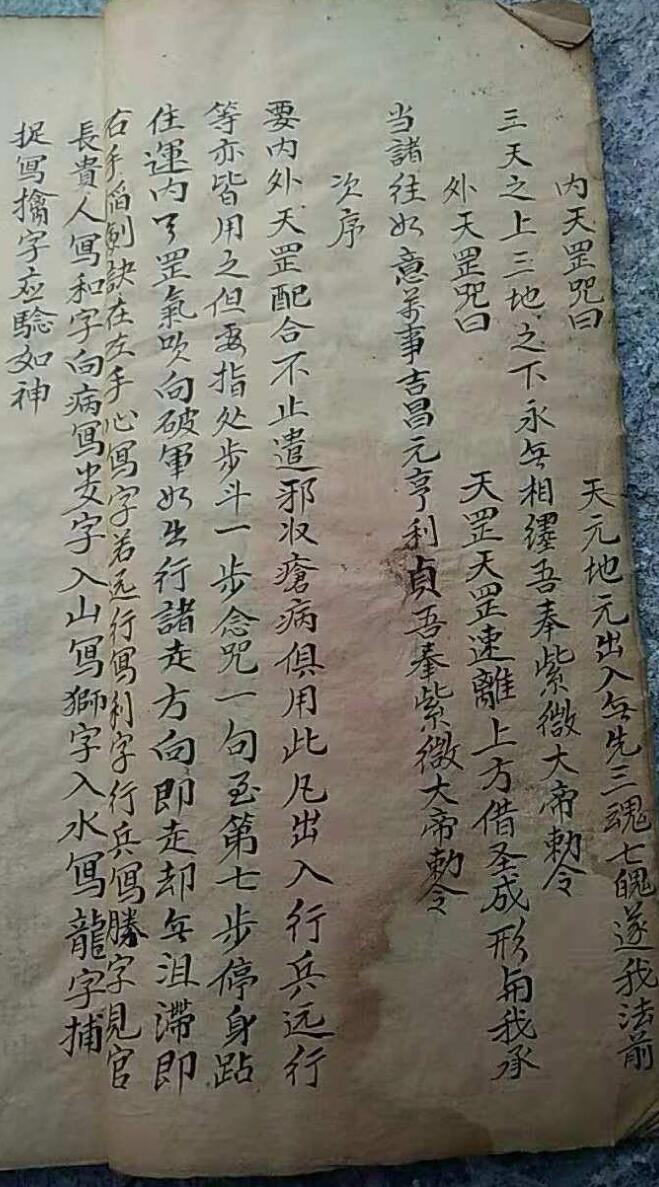 内天罡咒曰　天元地元出入無先三魂七魄遂我法前
三天之上三地之下永無相纆吾奉紫微大帝勅令
外天罡咒曰　天罡天罡速離上方借圣成形與我承
当諸往如意萬事吉昌元亨利貞吾奉紫微大帝勅令
次序
要内外天罡配合不止遣邪收瘡病俱用此凡出入行兵远行
等亦皆用之但要指处步斗一步念咒一句至第七步停身跕
住運内天罡氣吹向破軍如出行諸走方向即走却無沮滯即
右手掐剑訣在左手心寫字若远行寫利字行兵寫勝字見官
長貴人寫和字向病寫字入山寫獅字入水寫龍字捕
捉寫擒字应騐如神